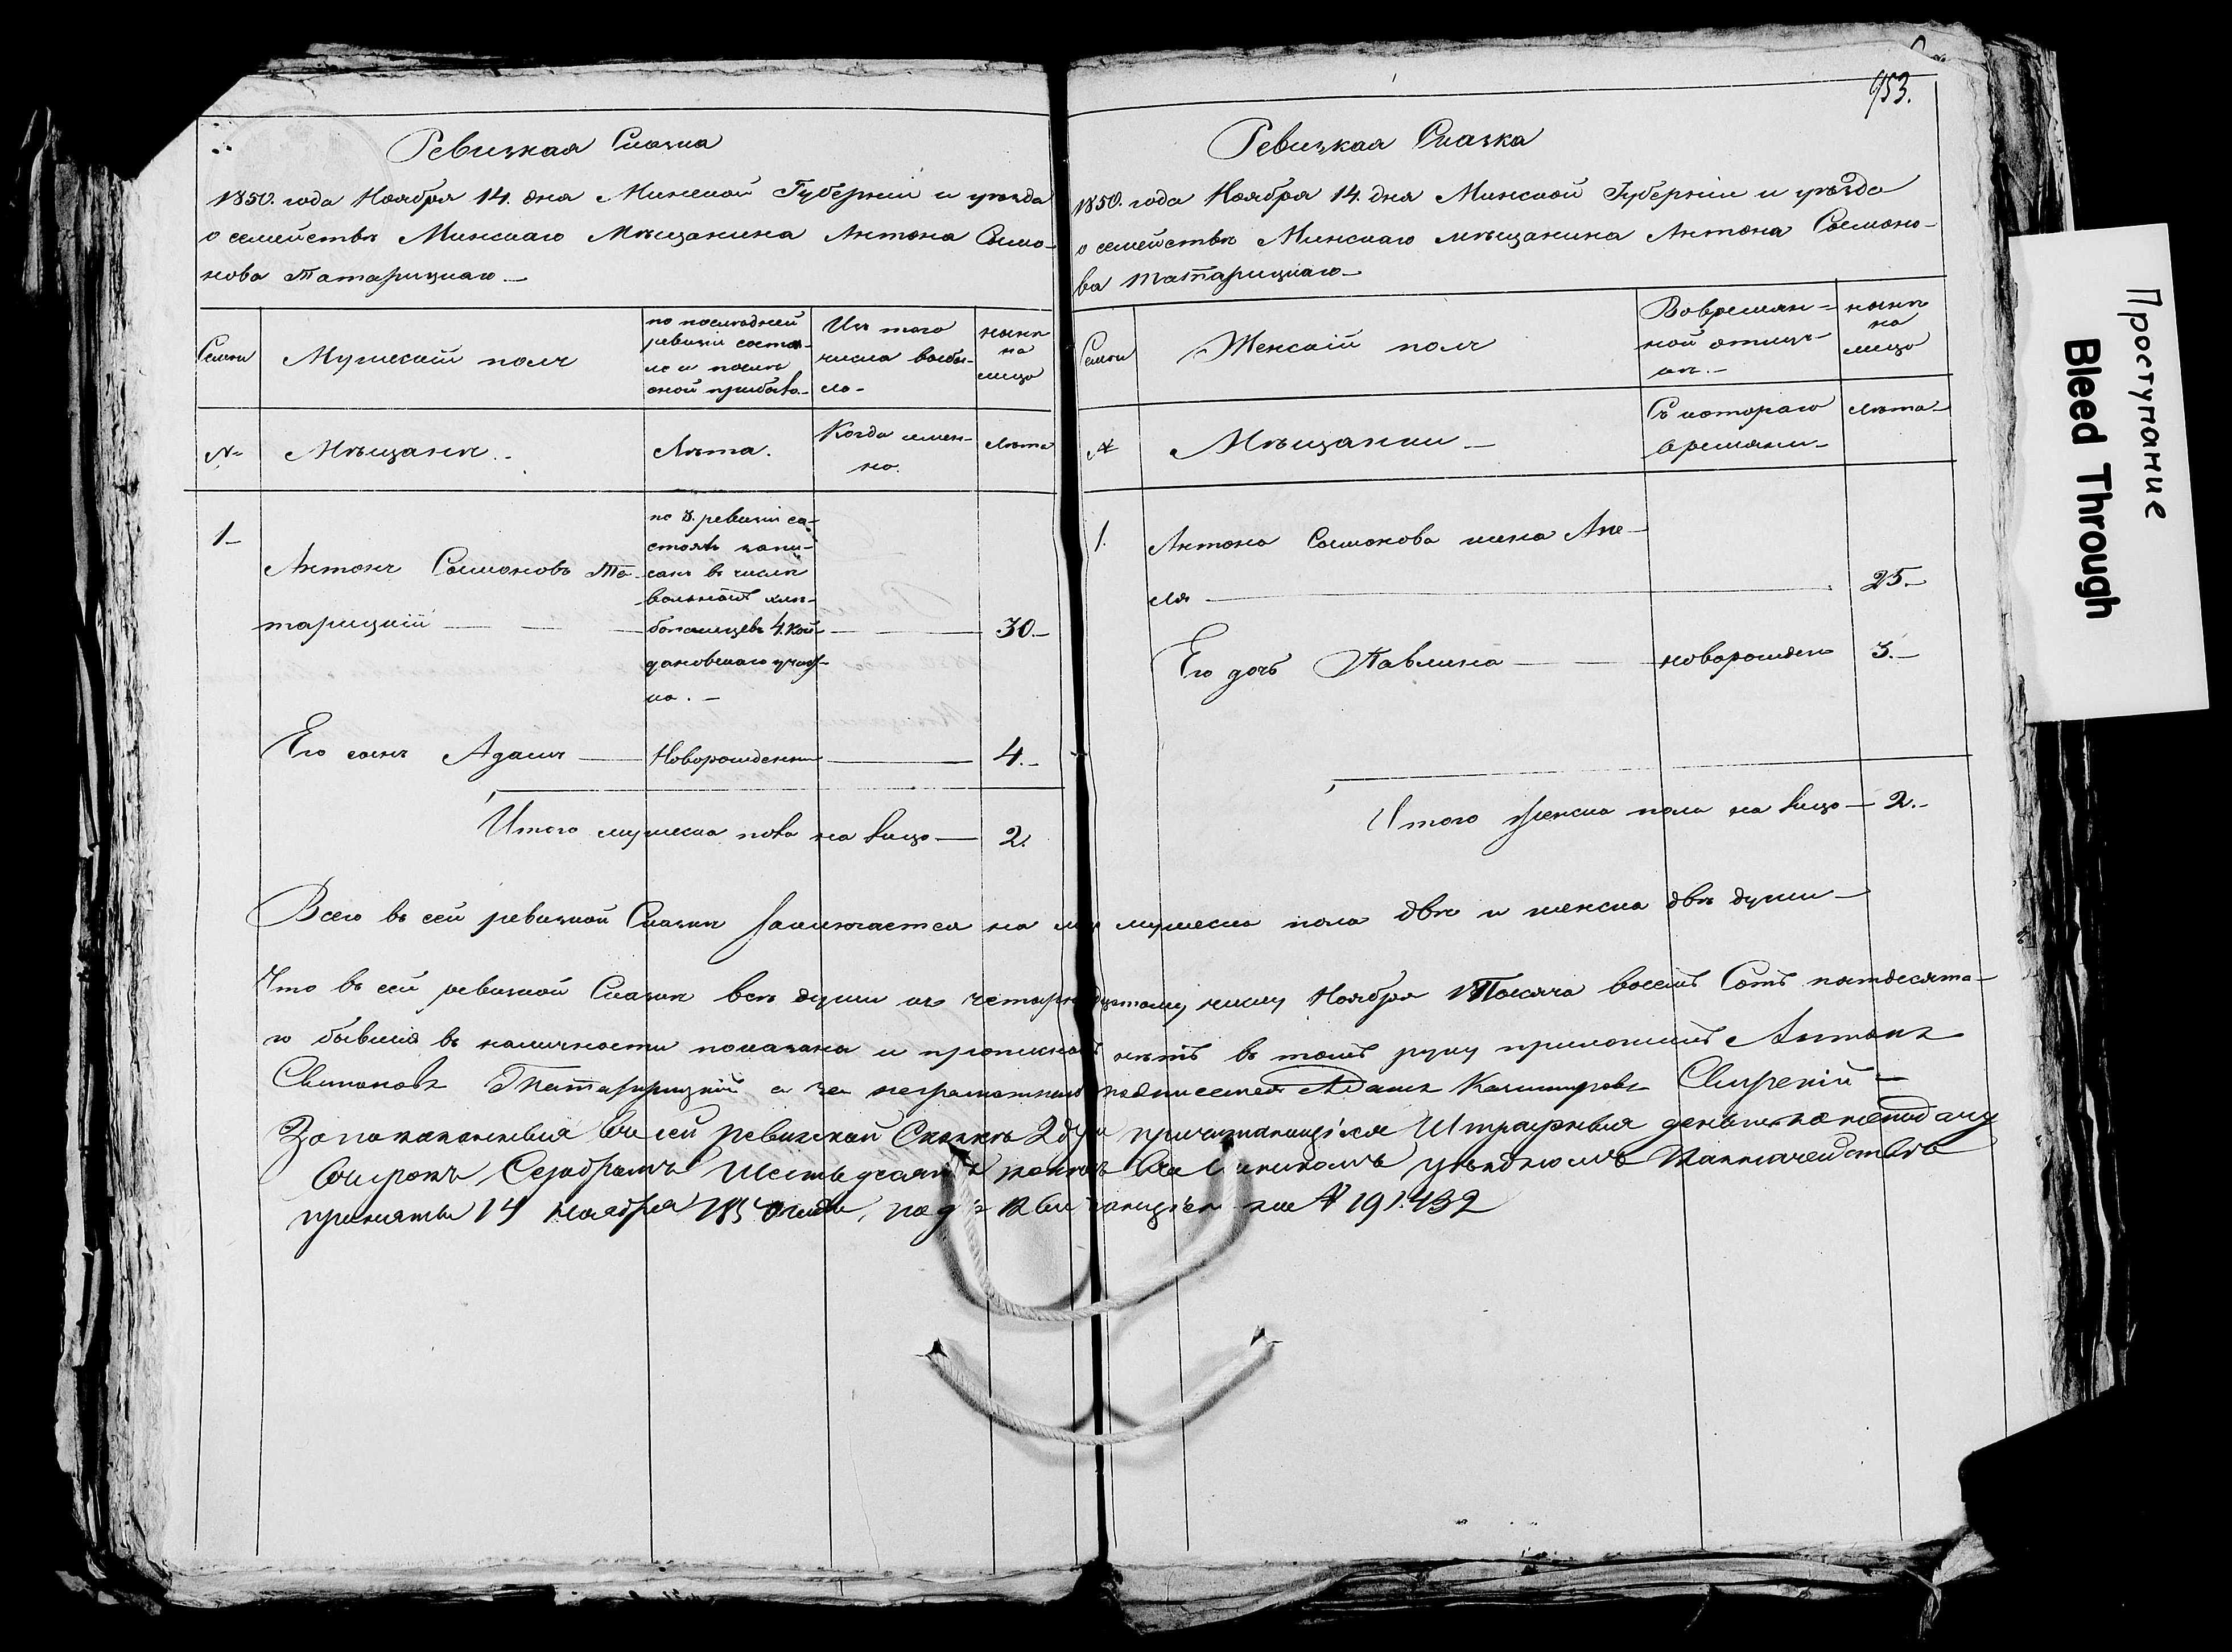 953.
Ревизкая Сказка
1850. года Ноября 14. дня Минской Губерніи и уѣзда
о семействѣ Минскаго Мѣщанина Антона Сымо-
нова Татарицкаго
Семьи
Мужескій полъ
по последней
ревизіи состоя-
ло и послѣ
оной прибыло
Изъ того
числа выбы-
ло
нынѣ
на
лицо
№
Мѣщанѣ
Лѣта.
Когда имен-
но.
Лѣта
1
по 8. ревизіи со-
стоялъ запи-
Антонъ Сымоновъ Та-
санъ въ числѣ
вольныхъ хлѣ-
тарицкій
бопашцевъ 4. Кой-
30
дановскаго участ-
ка.
Его сынъ Адамъ
Новорожденны
4.
Итого мужеска пола на лицо 2.
Ревизкая Сказка
1850. года Ноября 14. дня Минской Губерніи и уѣзда
о семействѣ Минскаго мѣщанина Антона Сымоно-
ва Татарицкаго
Семьи
Женскій полъ
Вовремян-
ной отлуч-
кѣ.
нынѣ
на
лицо
№
Мѣщанки
Съ котораго
времяни
лѣта
1.
Антона Сымонова жена Ане-
ля 25
Его дочь Павлина новорожден 3.
Итого женска пола на лицо 2.
Всего въ сей ревизкой Сказкѣ заключается на мужеска пола двѣ и женска двѣ души
Что въ сей ревизкой Сказкѣ всѣ души къ четырнадцатому числу Ноября Тысяча восемь Сотъ пятдесята-
го бывшія въ наличности показаны и прописныхъ нѣтъ въ томъ руку приложилъ Антонъ
Симоновъ Татарицкій а за неграмотнаго подписался Адамъ Казимировъ
За показанныя въ сей ревизской Сказкѣ 2 души причитающіяся Штрафныя деньги за неподачу
въ срокъ Серебромъ Шестьдесятъ копѣекъ въ Минскомъ уѣздномъ Казначействѣ
приняты 14 Ноября 1850 года, подъ Квитанціею за № 191.432
Проступание
Bleed Through